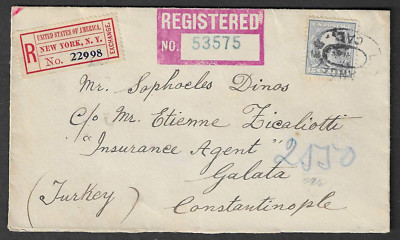 UNITED STATES OF AMERICA.
R
NEW YORK, N. Y.
EXCHANGE.
No. 22998
REGISTERED
NO. 53575
CAL.
Mr. Sophocles Dinos
c/o Mr. Etienne Zicaliotti
"Insurance Agent"
2550
Galata
(Turkey)
Constantinople